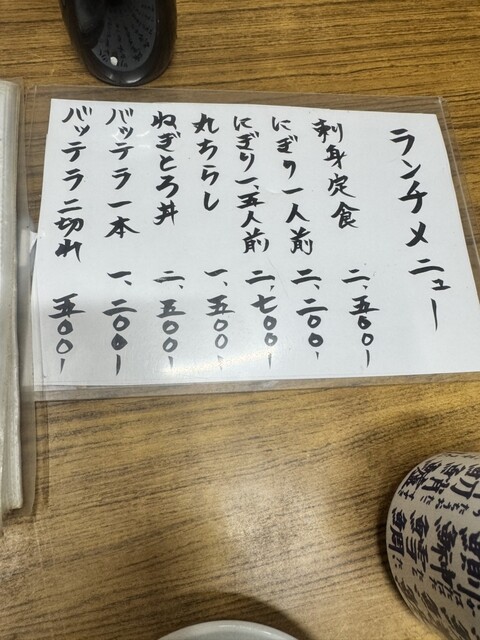 ランチメニュー
刺身定食 二、五〇〇ー
にぎり一人前 二、二〇〇ー
にぎり一、五人前 二、七〇〇ー
丸ちらし 一、五〇〇ー
ねぎとろ丼 二、五〇〇ー
バッテラ一本 一、二〇〇ー
バッテラ二切れ 五〇〇ー